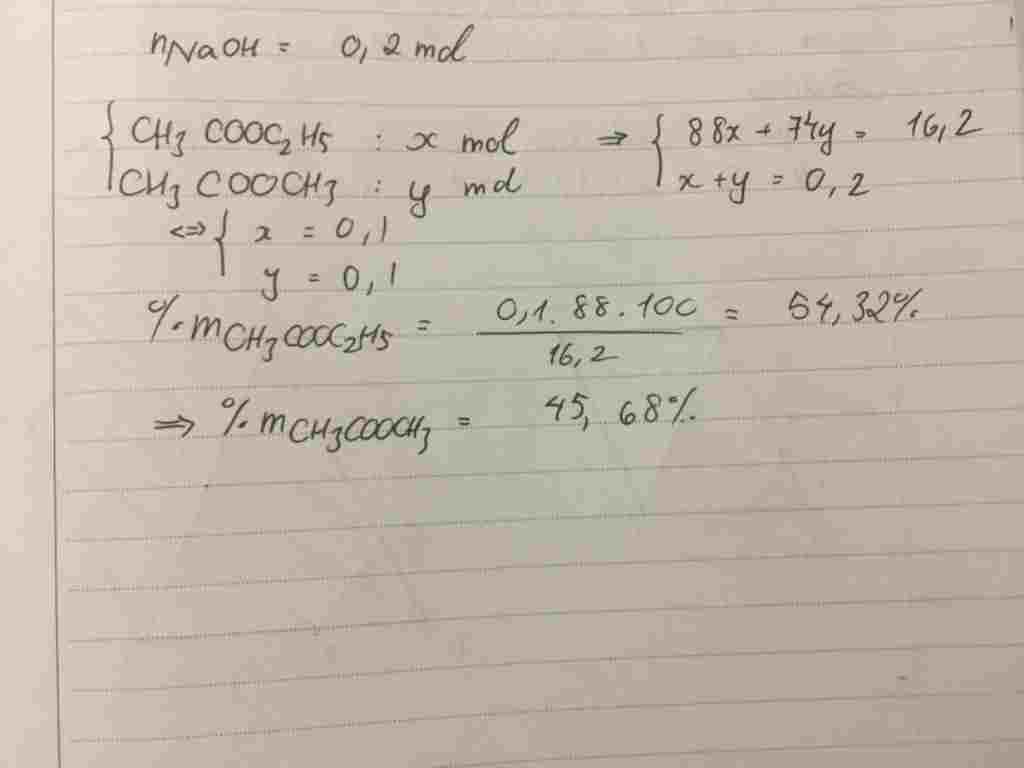 nNaOH = 0,2 mol
{ CH3COOC2H5 : x mol ⇒ { 88x + 74y = 16,2
CH3COOCH3 : y mol x + y = 0,2
<=> { x = 0,1
y = 0,1
%mCH3COOC2H5 = 0,1.88.100 / 16,2 = 54,32%
⇒ %mCH3COOCH3 = 45,68%